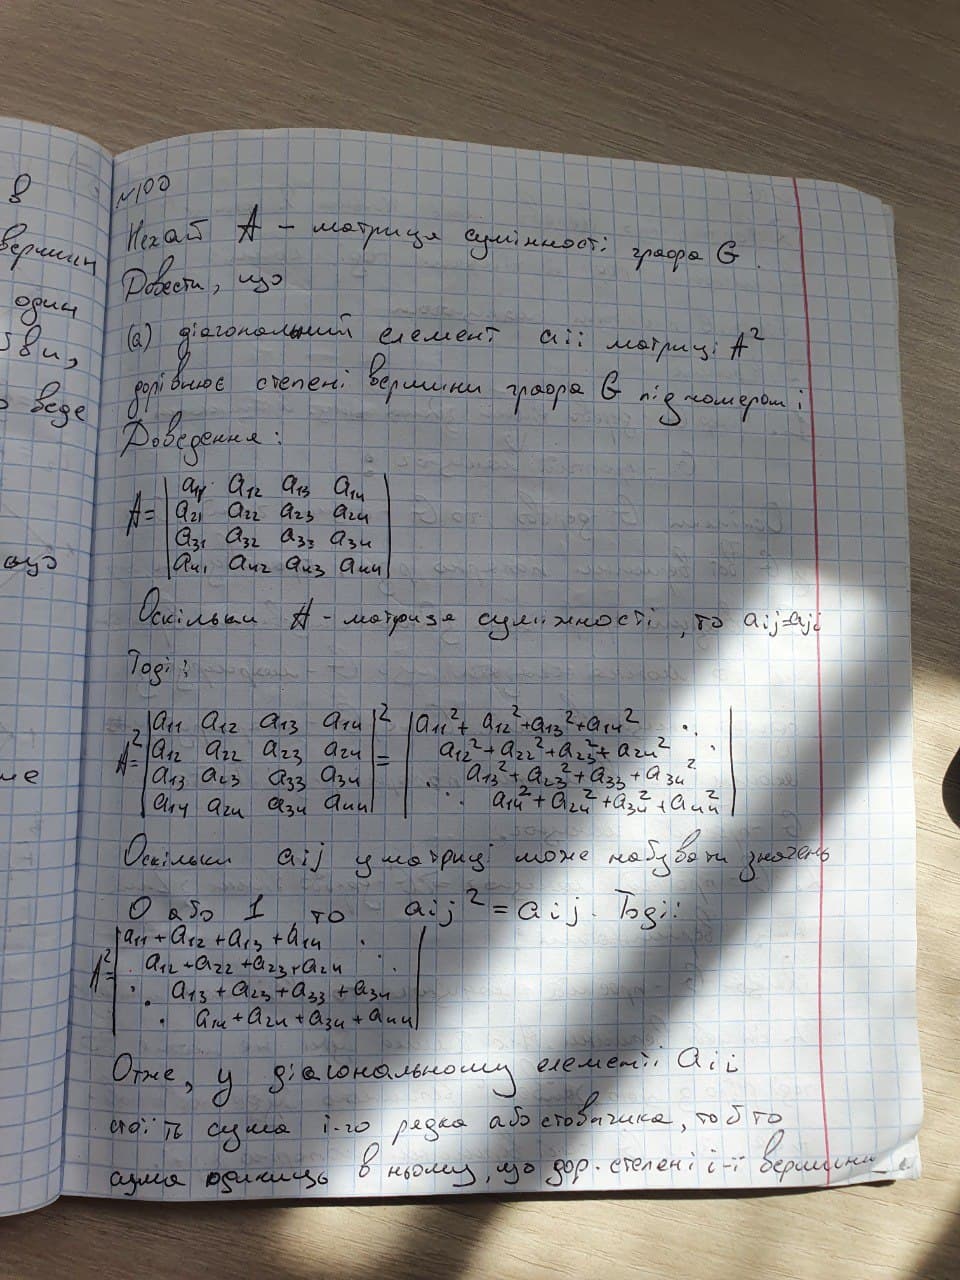 в
вершин
один
бви,
о веде
ощо
ме
№100
Нехай A – матриця суміжності графа G.
Довести, що
(а) діагональний елемент aii матриці A²
дорівнює степені вершини графа G під номером i
Доведення:
A= | a11 a12 a13 a14 |
| a21 a22 a23 a24 |
| a31 a32 a33 a34 |
| a41 a42 a43 a44 |
Оскільки A – матриця суміжності, то aij=aji
Тоді:
A²= | a11 a12 a13 a14 |² = | a11²+a12²+a13²+a14² ⋱ |
| a12 a22 a23 a24 | | a12²+a22²+a23²+a24² |
| a13 a23 a33 a34 | | a13²+a23²+a33+a34² |
| a14 a24 a34 a44 | | a14²+a24²+a34²+a44² |
Оскільки aij у матриці може набувати значень
0 або 1 то aij²=aij. Тоді:
A²= | a11+a12+a13+a14 |
| a12+a22+a23+a24 |
| a13+a23+a33+a34 |
| a14+a24+a34+a44 |
Отже, у діагональному елементі aii
стоїть сума i-го рядка або стовпчика, тобто
сума одиниць в ньому, що дор. степені i-ї вершини